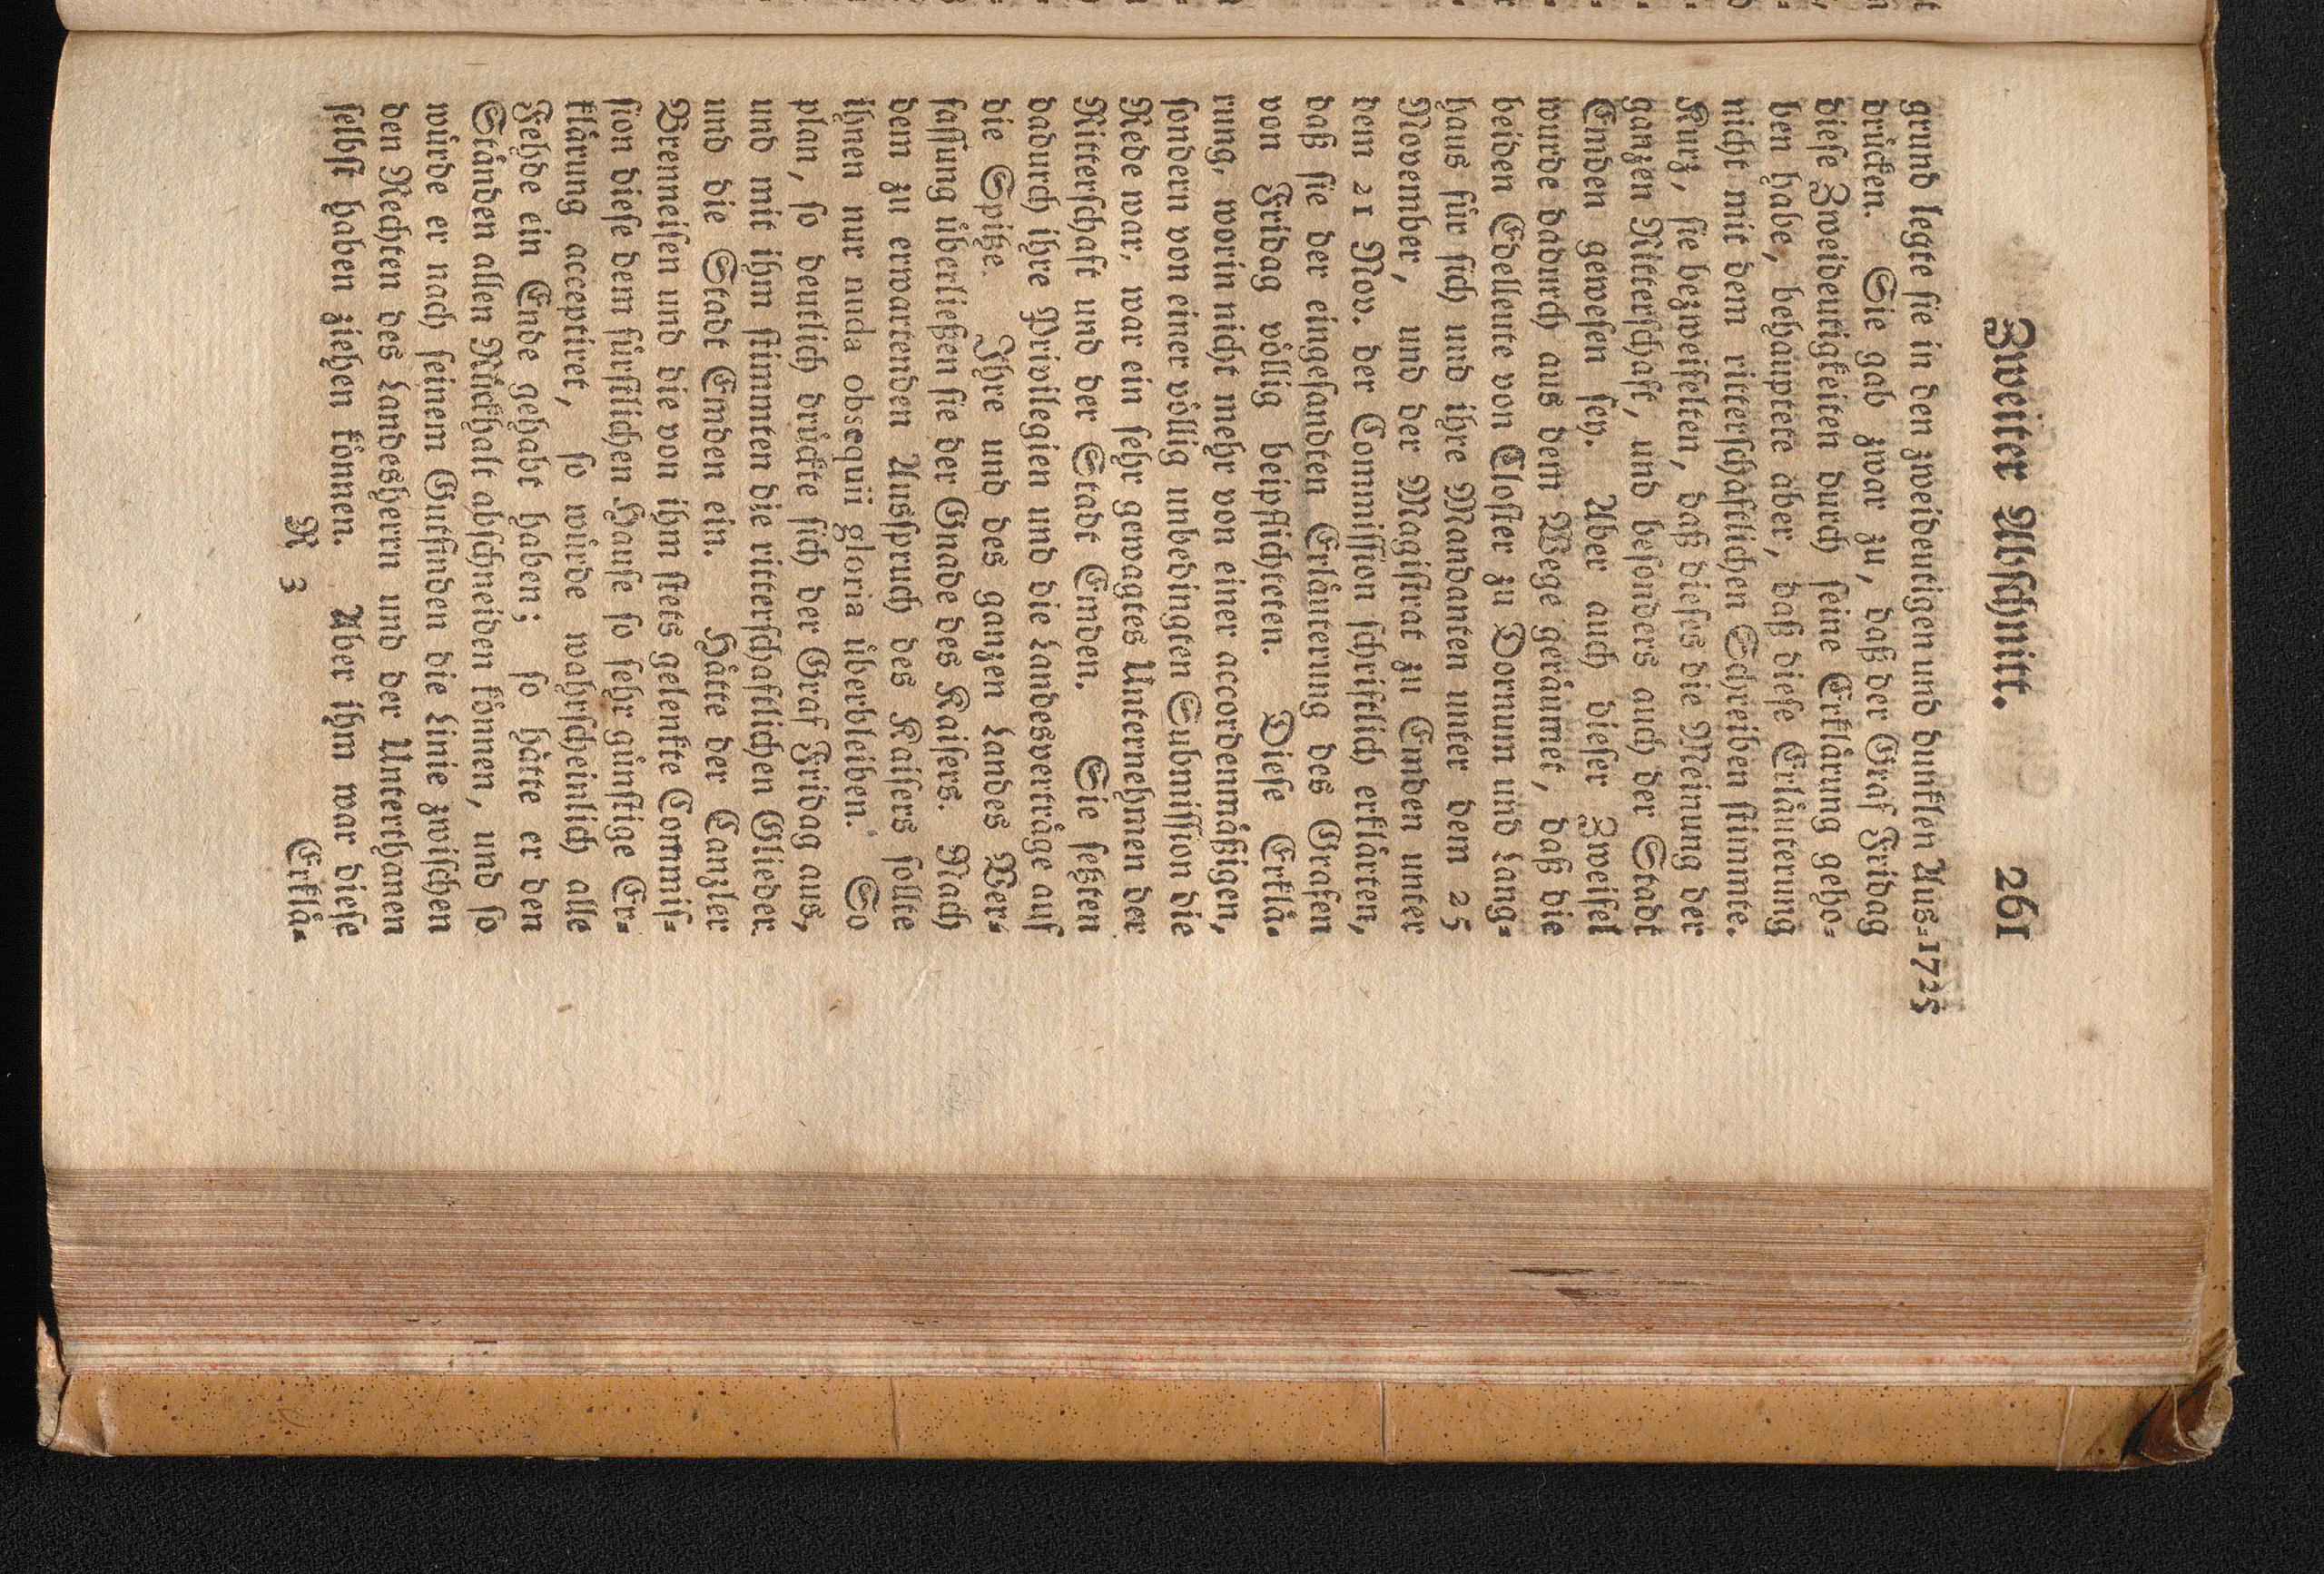 Zweiter Abschnitt. 261
grund legte sie in den zweideutigen und dunklen Aus- 1725
drücken. Sie gab zwar zu, daß der Graf Fridag
diese Zweideutigkeiten durch seine Erklärung geho-
ben habe, behauptete aber, daß diese Erläuterung
nicht mit dem ritterschaftlichen Schreiben stimmte.
Kurz, sie bezweifelten, daß dieses die Meinung der
ganzen Ritterschaft, und besonders auch der Stadt
Emden gewesen sey. Aber auch dieser Zweifel
wurde dadurch aus dem Wege geräumet, daß die
beiden Edelleute von Closter zu Dornum und Lang-
haus für sich und ihre Mandanten unter dem 25
November, und der Magistrat zu Emden unter
dem 21 Nov. der Commission schriftlich erklärten,
daß sie der eingesandten Erläuterung des Grafen
von Fridag völlig beipflichteten. Diese Erklä-
rung, worin nicht mehr von einer accordenmäßigen,
sondern von einer völlig unbedingten Submission die
Rede war, war ein sehr gewagtes Unternehmen der
Ritterschaft und der Stadt Emden. Sie setzten
dadurch ihre Privilegien und die Landesverträge auf
die Spitze. Ihre und des ganzen Landes Ver-
fassung überließen sie der Gnade des Kaisers. Nach
dem zu erwartenden Ausspruch des Kaisers sollte
ihnen nur nuda obsequii gloria überbleiben. So
plan, so deutlich drückte sich der Graf Fridag aus,
und mit ihm stimmten die ritterschaftlichen Glieder
und die Stadt Emden ein. Hätte der Canzler
Brenneisen und die von ihm stets gelenkte Commis-
sion diese dem fürstlichen Hause so sehr günstige Er-
klärung acceptiret, so würde wahrscheinlich alle
Fehde ein Ende gehabt haben; so hätte er den
Ständen allen Rückhalt abschneiden können, und so
würde er nach seinem Gutfinden die Linie zwischen
den Rechten des Landesherrn und der Unterthanen
selbst haben ziehen können. Aber ihm war diese
R 3 Erklä-